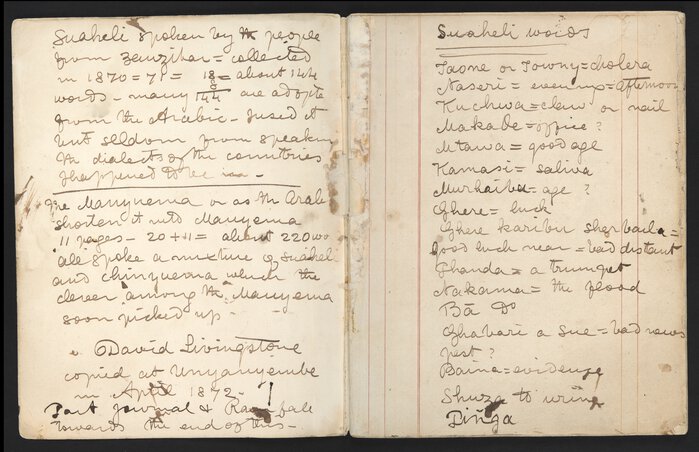 Suaheli spoken by the people
from Zenzibar = collected
in 1870=71 = 18 = about 144
words - many 144 are adopte
from the Arabic - I used it
but seldom from speaking
the dialects of the countries
I happened to be in -
The Manyuema or as the Arabs
shorten it into Manyema
11 pages - 20 + 11 = about 220 wo
all spoke a mixture of Suaheli
and chinyuema which the
clever among the Manyema
soon picked up -
David Livingstone
copied at Unyanyembe
in April 1872 -
Part Journal & Rainfall
towards the end of this -
Suaheli words
Taone or Towny = cholera
Naseri = evening = afternoon
Kuchwa = claw or nail
Makabe = office ?
Mtawa = good age
Kamasi = saliva
= age ?
Ghere = luck
Ghere karibu Sher baila =
good luck near = bad distant
Ghanda = a trumpet
Nakama = the flood
Bā Do
Ghabari a Sue = bad news
pest ?
Baina = evidence
Shuza to urine
Dinga